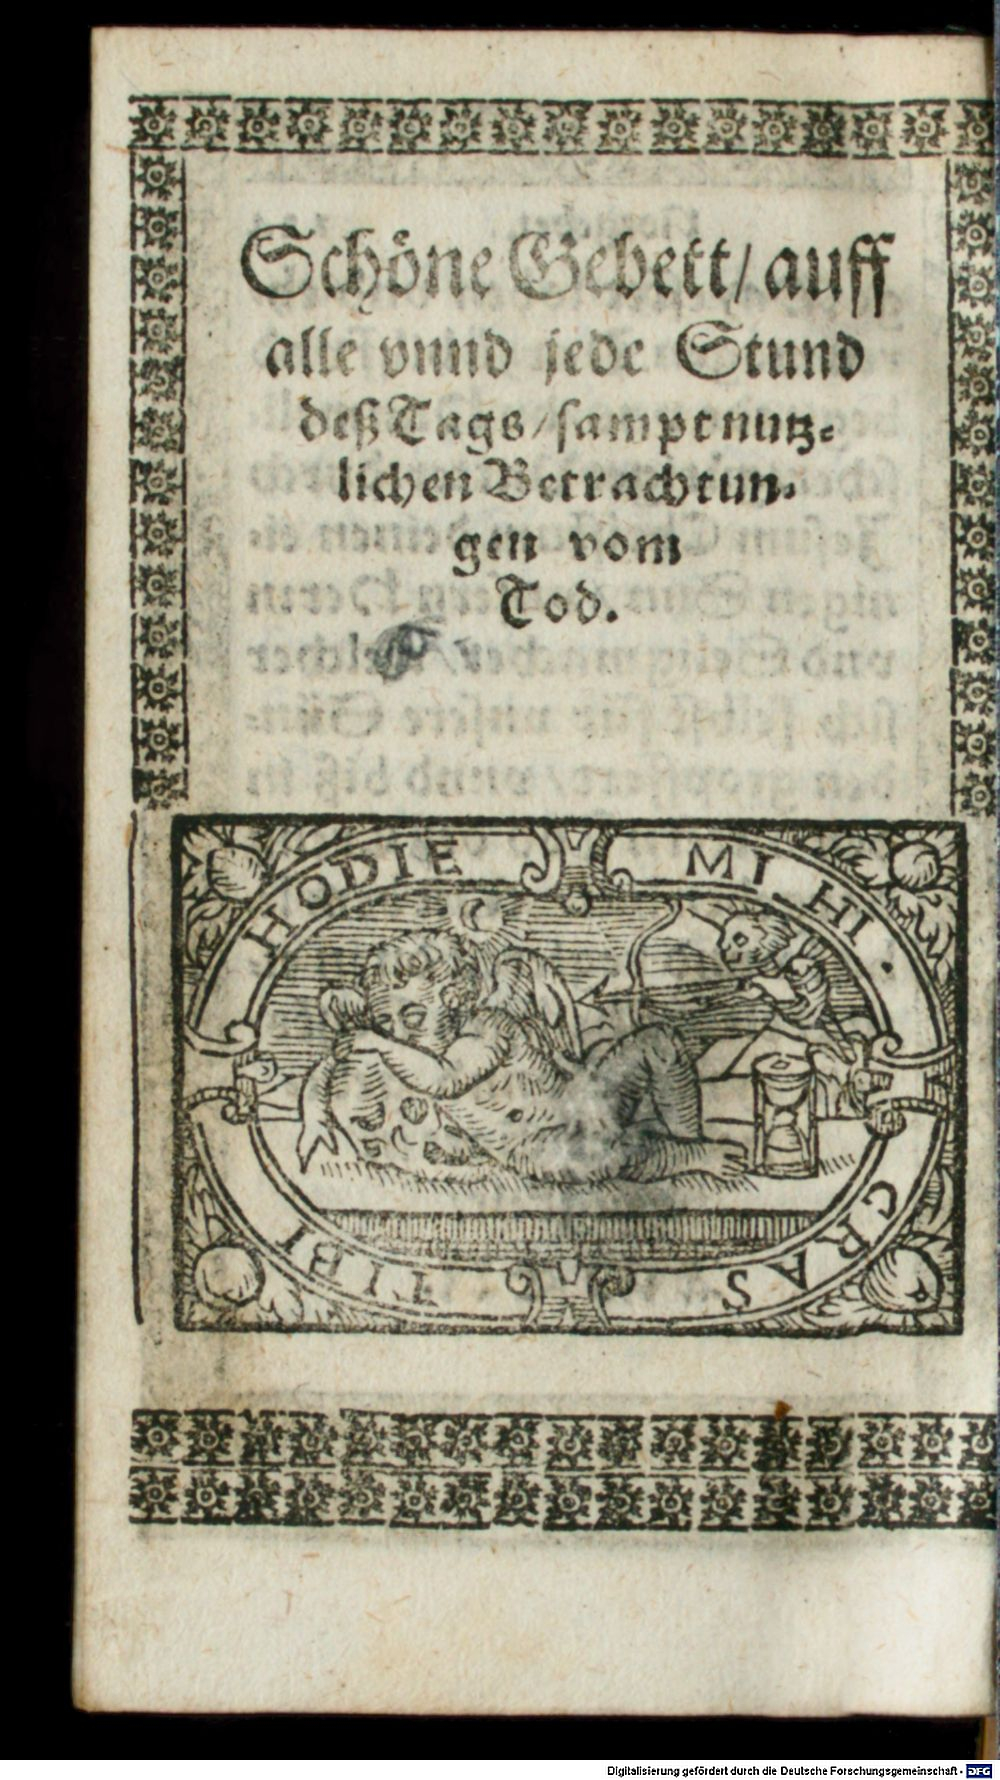 Schöne Gebett / auff
alle vnnd jede Stund
deß Tags / sampt nutz-
lichen Betrachtun-
gen vom
Tod.
HODIE MIHI.
CRAS TIBI
Digitalisierung gefördert durch die Deutsche Forschungsgemeinschaft - DFG